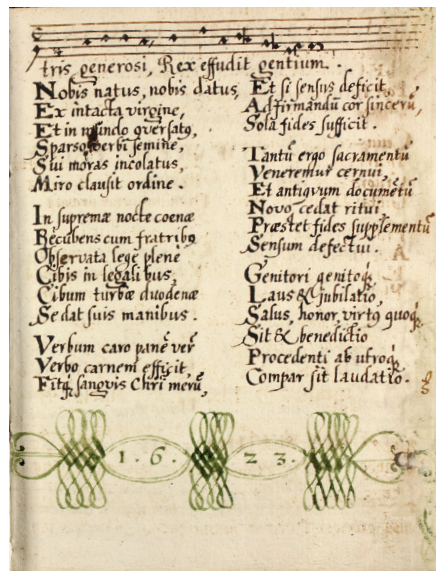 tris generosi, Rex effudit gentium.
Nobis natus, nobis datus,
Ex intacta virgine,
Et in mundo cōversatꝰ,
Sparso verbi semine,
Sui moras incolatus,
Miro clausit ordine.
In supremæ nocte coenæ
Recubens cum fratribꝰ
Observata lege plene
Cibis in legalibus,
Cibum turbæ duodenæ
Se dat suis manibus.
Verbum caro panē verū
Verbo carnem efficit,
Fitqꝫ sangvis Chri merū,
Et si sensus deficit,
Ad firmandū cor sincerū,
Sola fides sufficit.
Tantū ergo sacramentū
Veneremur cernui,
Et antiqvum documētū
Novo cedat ritui
Præstet fides supplementū
Sensum defectui.
Genitori genitoqꝫ
Laus & jubilatio,
Salus, honor, virtꝰ quoqꝫ
Sit & benedictio
Procedenti ab utroqꝫ
Compar sit laudatio.
1.6.23.